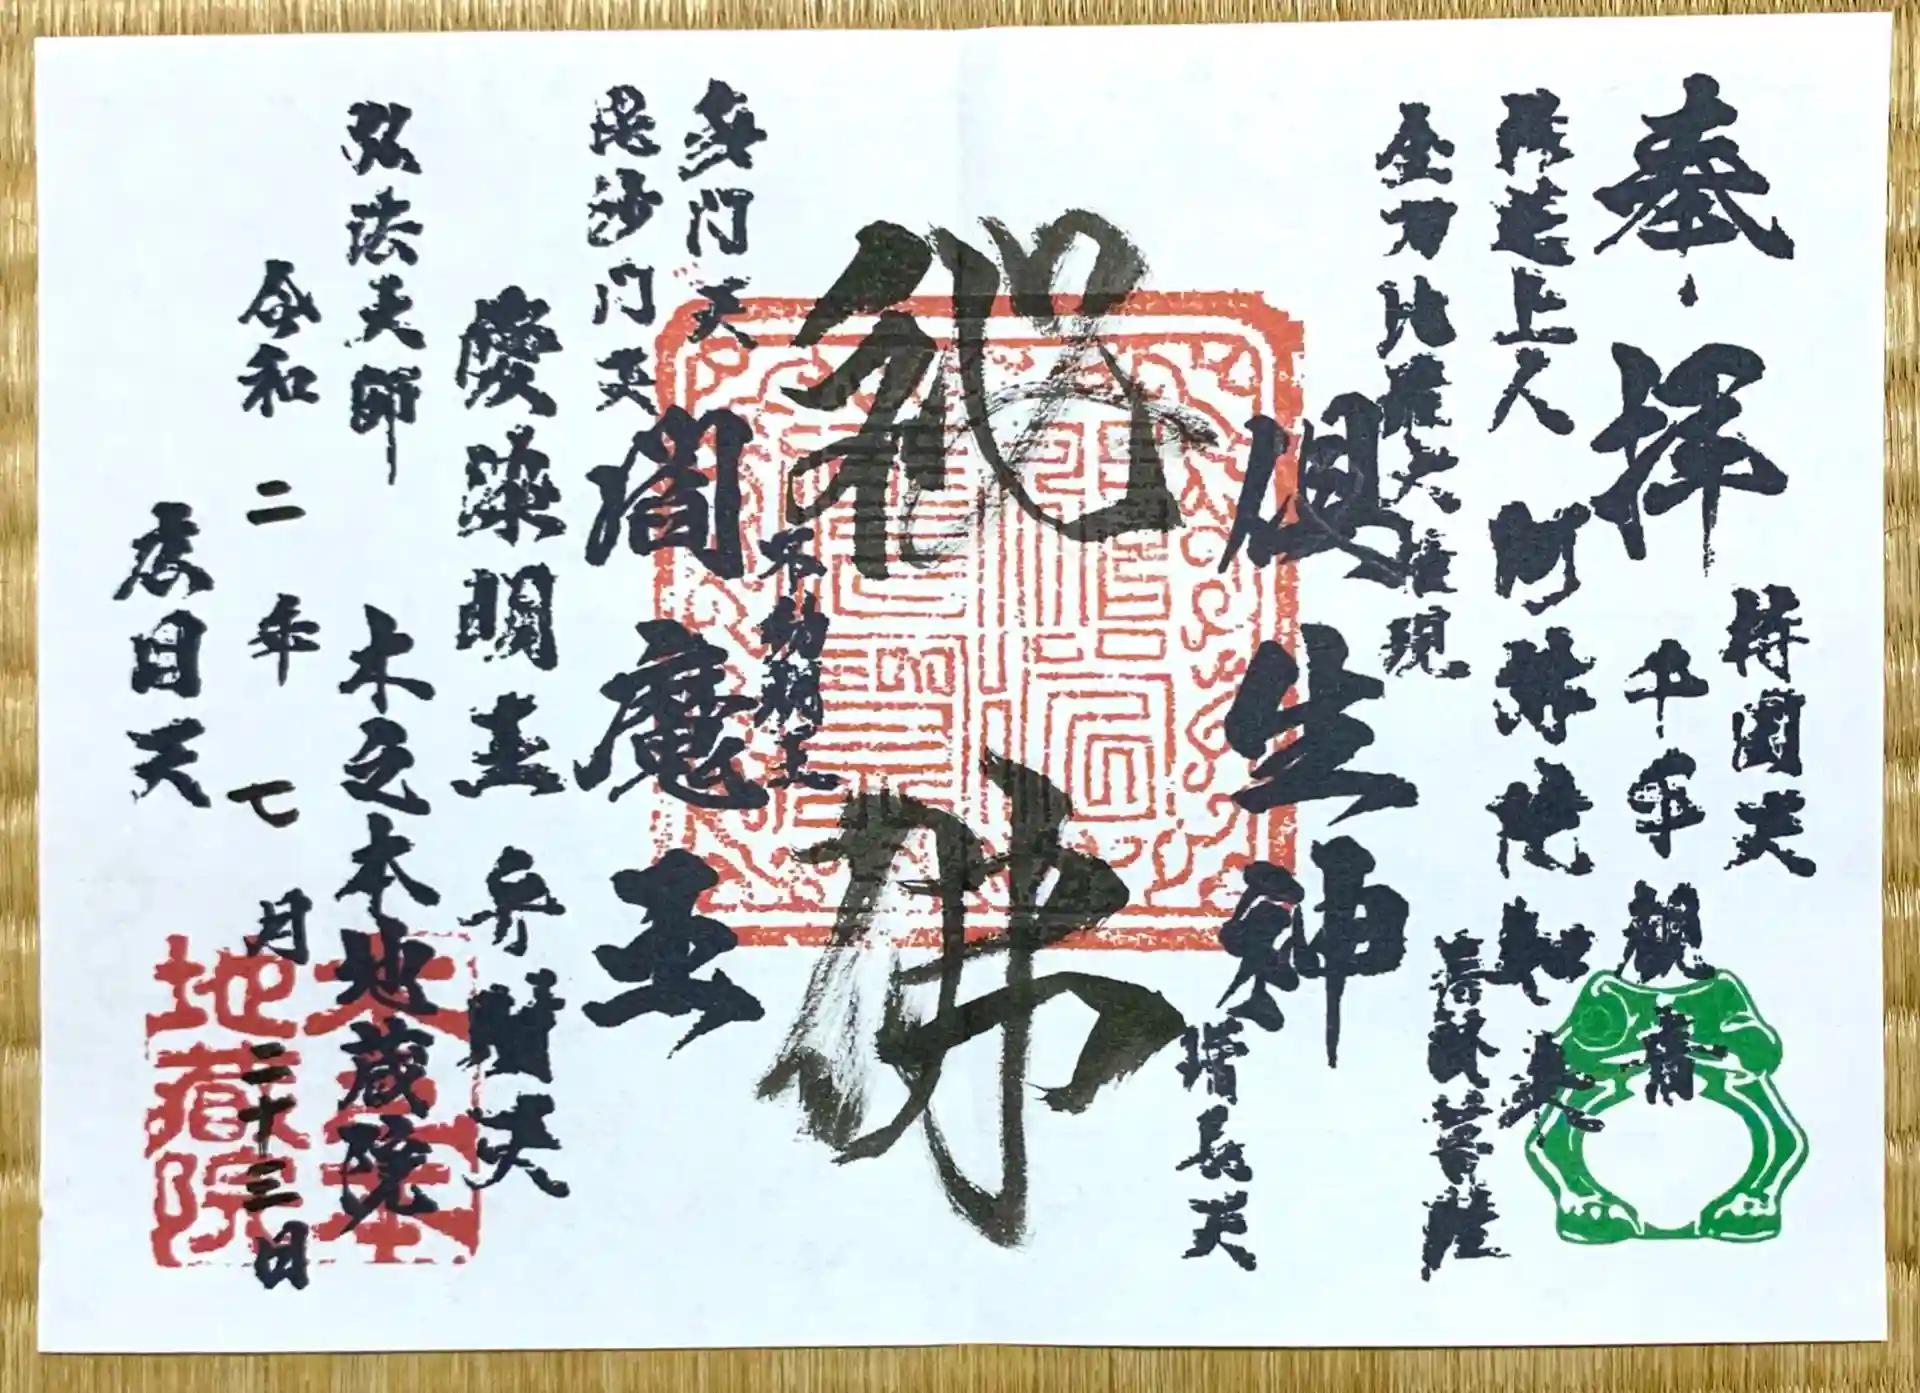 持國天
奉拝
千手観音
阿弥陀如来
上人
金刀比羅大権現
菩薩
倶生神
増長天
秘佛
不動明王
多門天
毘沙门天
閻魔王
愛染明王
弁財天
弘法大師
木之本地蔵院
令和二年七月二十三日
廣目天
木之本
地蔵院